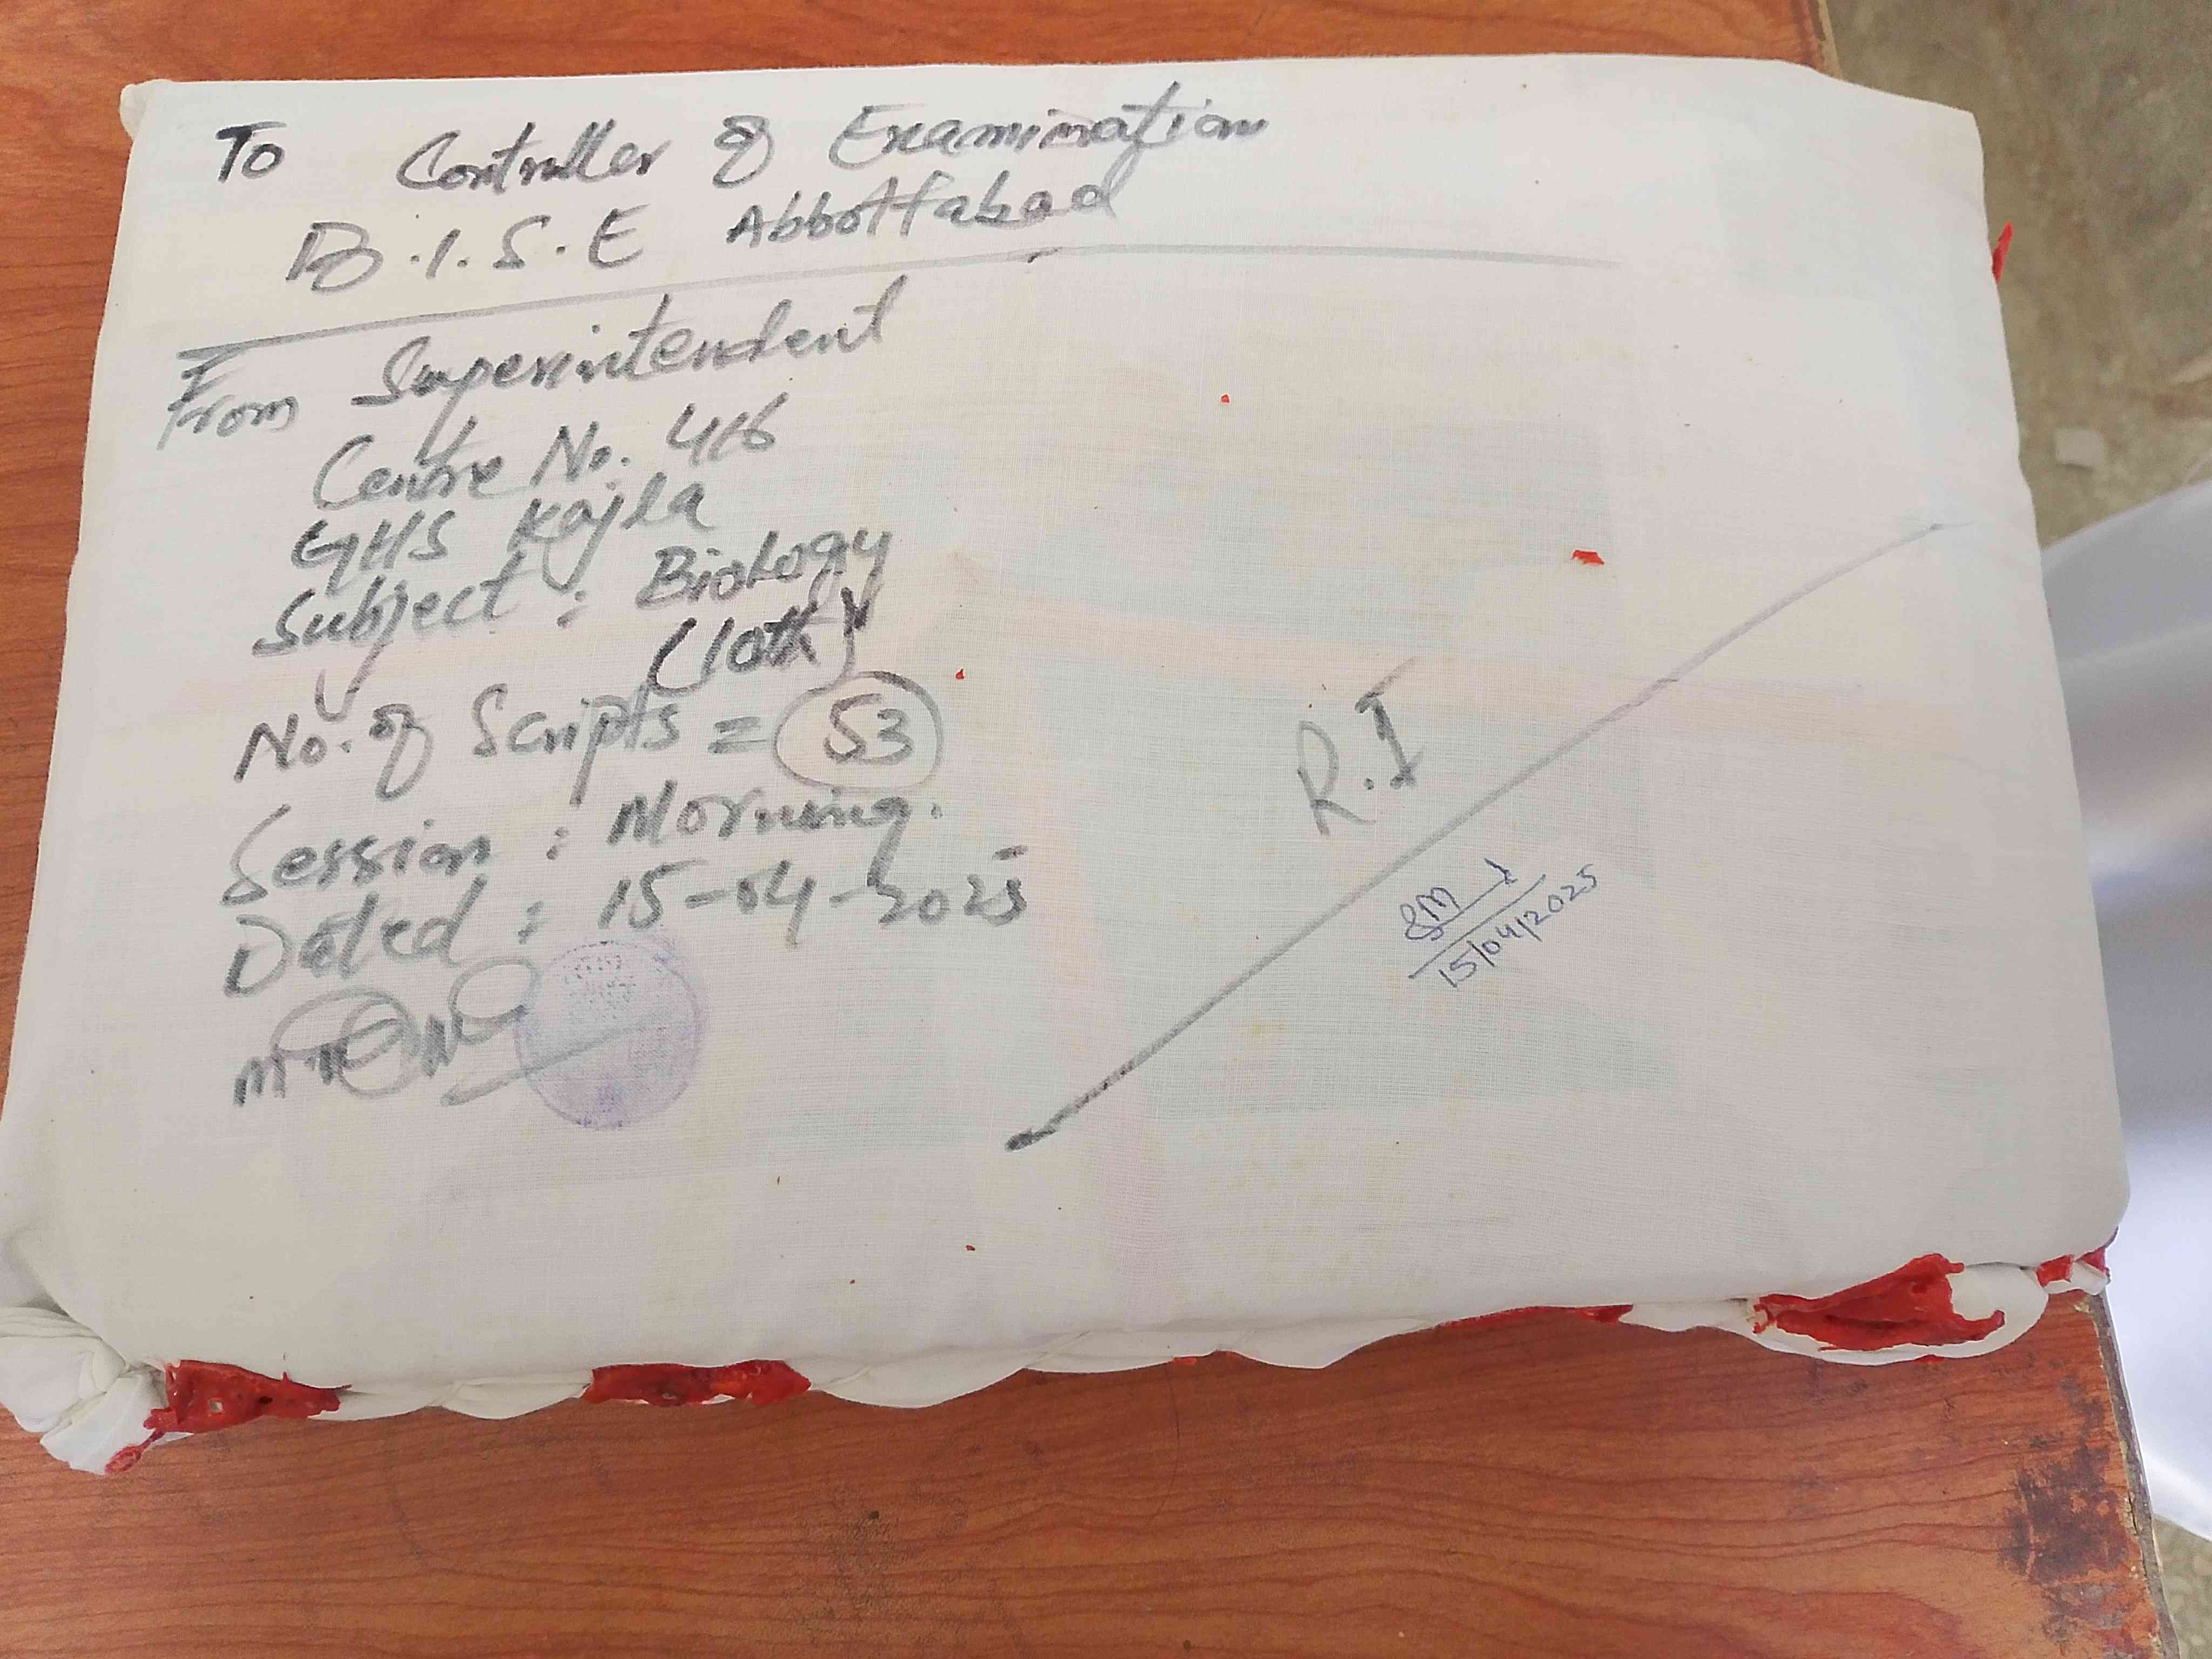 To Controller of Examination
B.I.S.E Abbottabad
From Superintendent
Centre No. 416
GHS Kajla
Subject : Biology
(10th)
No. of Scripts = 53
Session : Morning.
Dated : 15-04-2025
R.I
15/04/2025